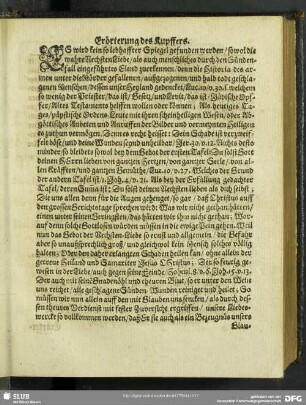 Erörterung des Kupffers.
ES wird kein so lebhaffter Spiegel gefunden werden / sowol die
wahre Nechsten Liebe / als auch menschliches durch den Sünden-
fall eingeführtes Elend zuerkennen / denn die Historia des ar-
men unter die Mörder gefallenen / außgezogenen und halb todt geschla-
genen Menschen / dessen unser Heyland gedencket / Lucae 10/30. f. welchem
so wenig der Priester / das ist / Gesetz / und Levit / das ist / Opf-
fer / Altes Testaments helffen wollen oder können / Als heutiges Ta-
ges / päpstische Ordens Leute mit ihren scheinheiligen Wesen / oder Ab-
göttisches Anbeten und Anruffen der Bilder und vornehmen Heiligen
es zuthun vermögen. Jennes recht heisset: Dein Schade ist verzweif-
felt böse / und deine Wunden sind unheilbar / Jer. 30/ v. 12. Nichts desto
minder so bleibets sowol bey dem Gebot der ersten Tafel: Du solt Gott
deinen HErrn lieben von gantzen Hertzen / von gantzer Seele / von al-
len Kräfften / und gantzen Gemüthe / Luc. 10/ 27. Welcher der Grund
der andern Tafel ist / 1. Joh. 4/ v. 21. Als bey der Erfüllung gedachter
Tafel / deren Suma ist: Du solst deinen Nechsten lieben als dich selbst;
Die uns allen denn für die Augen gehenget / so gar / daß Christus auff
der grossen Gerichtstage sprechen wird: Was wir nicht gethan hätten /
einem unter seinen Geringsten / das hätten wir ihm nicht gethan; Wor-
auf denn solche Gottlosen würden müssen in die ewige Pein gehen. Weil
nun das Gebot der Nechsten Liebe so groß und allgemein / die Gefahr
aber so unaußsprechlich groß / und gleichwol kein Mensch solches völlig
halten; Wer den daher erlangten Schaden heilen kan / ohn allein der
getreue Heiland und Samariter JEsus Christus; Der so feurig ge-
wesen in der Liebe / auch gegen seine Feinde.
Der auch mit seinem Gnadenöhl und theuren Blut / so er unter den Wein
uns reichet / alle geschlagene Sünden Wunden reiniget und heilet; So
müssen wir nun allein auff den mit Glauben uns sencken / als durch des-
sen theures Verdienst mit fester Zuversicht ergriffen / unsere Liebes-
wercke so vollkommen werden / daß Er sie auch als ein Bezeugnüs unsers
Glau-
SLUB
DFG